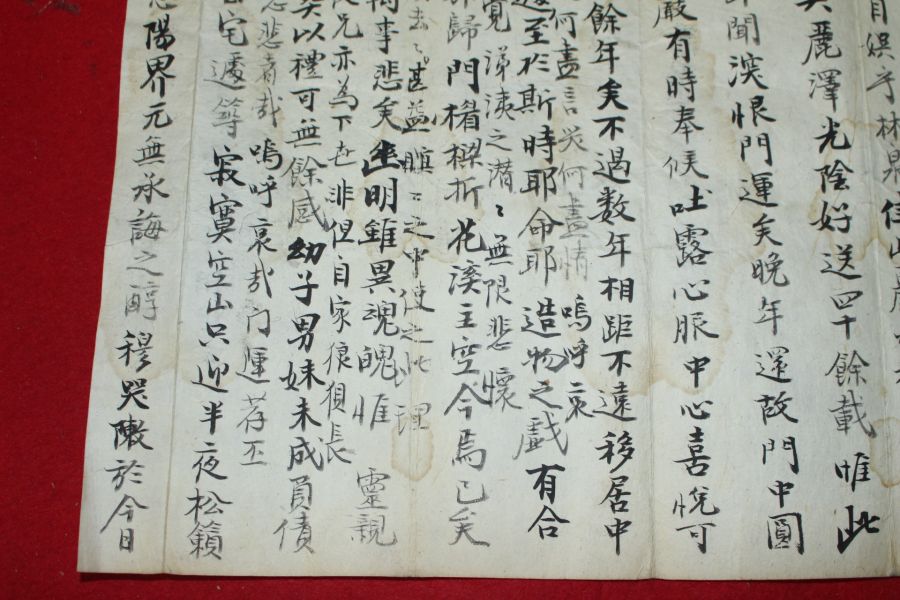 自娯乎林泉
麗澤光陰好送四十餘載惟此
年聞渓恨門運矣晚年還故門中圓
嚴有時奉候吐露心服中心喜悅可
餘年矣不過数年相距不遠移居中
何盡言哭何盡情嗚呼哀
至於斯時耶命耶造物之戲有合
覓涕洟之潛〻無限悲懷
歸門楣樑折花溪主空今焉已矣
去〻甚益瞋〻之中使之此理
事悲矣幽明雖異魂魄惟靈親
兄亦為下世非但自家狼狽長
矣以禮可無餘感幼子男妹未成員債
悲者哉嗚呼哀哉門運荐丕
宅遽等寂寞空山只迎半夜松籟
陽界元無承誨之醇穆哭墩於今日